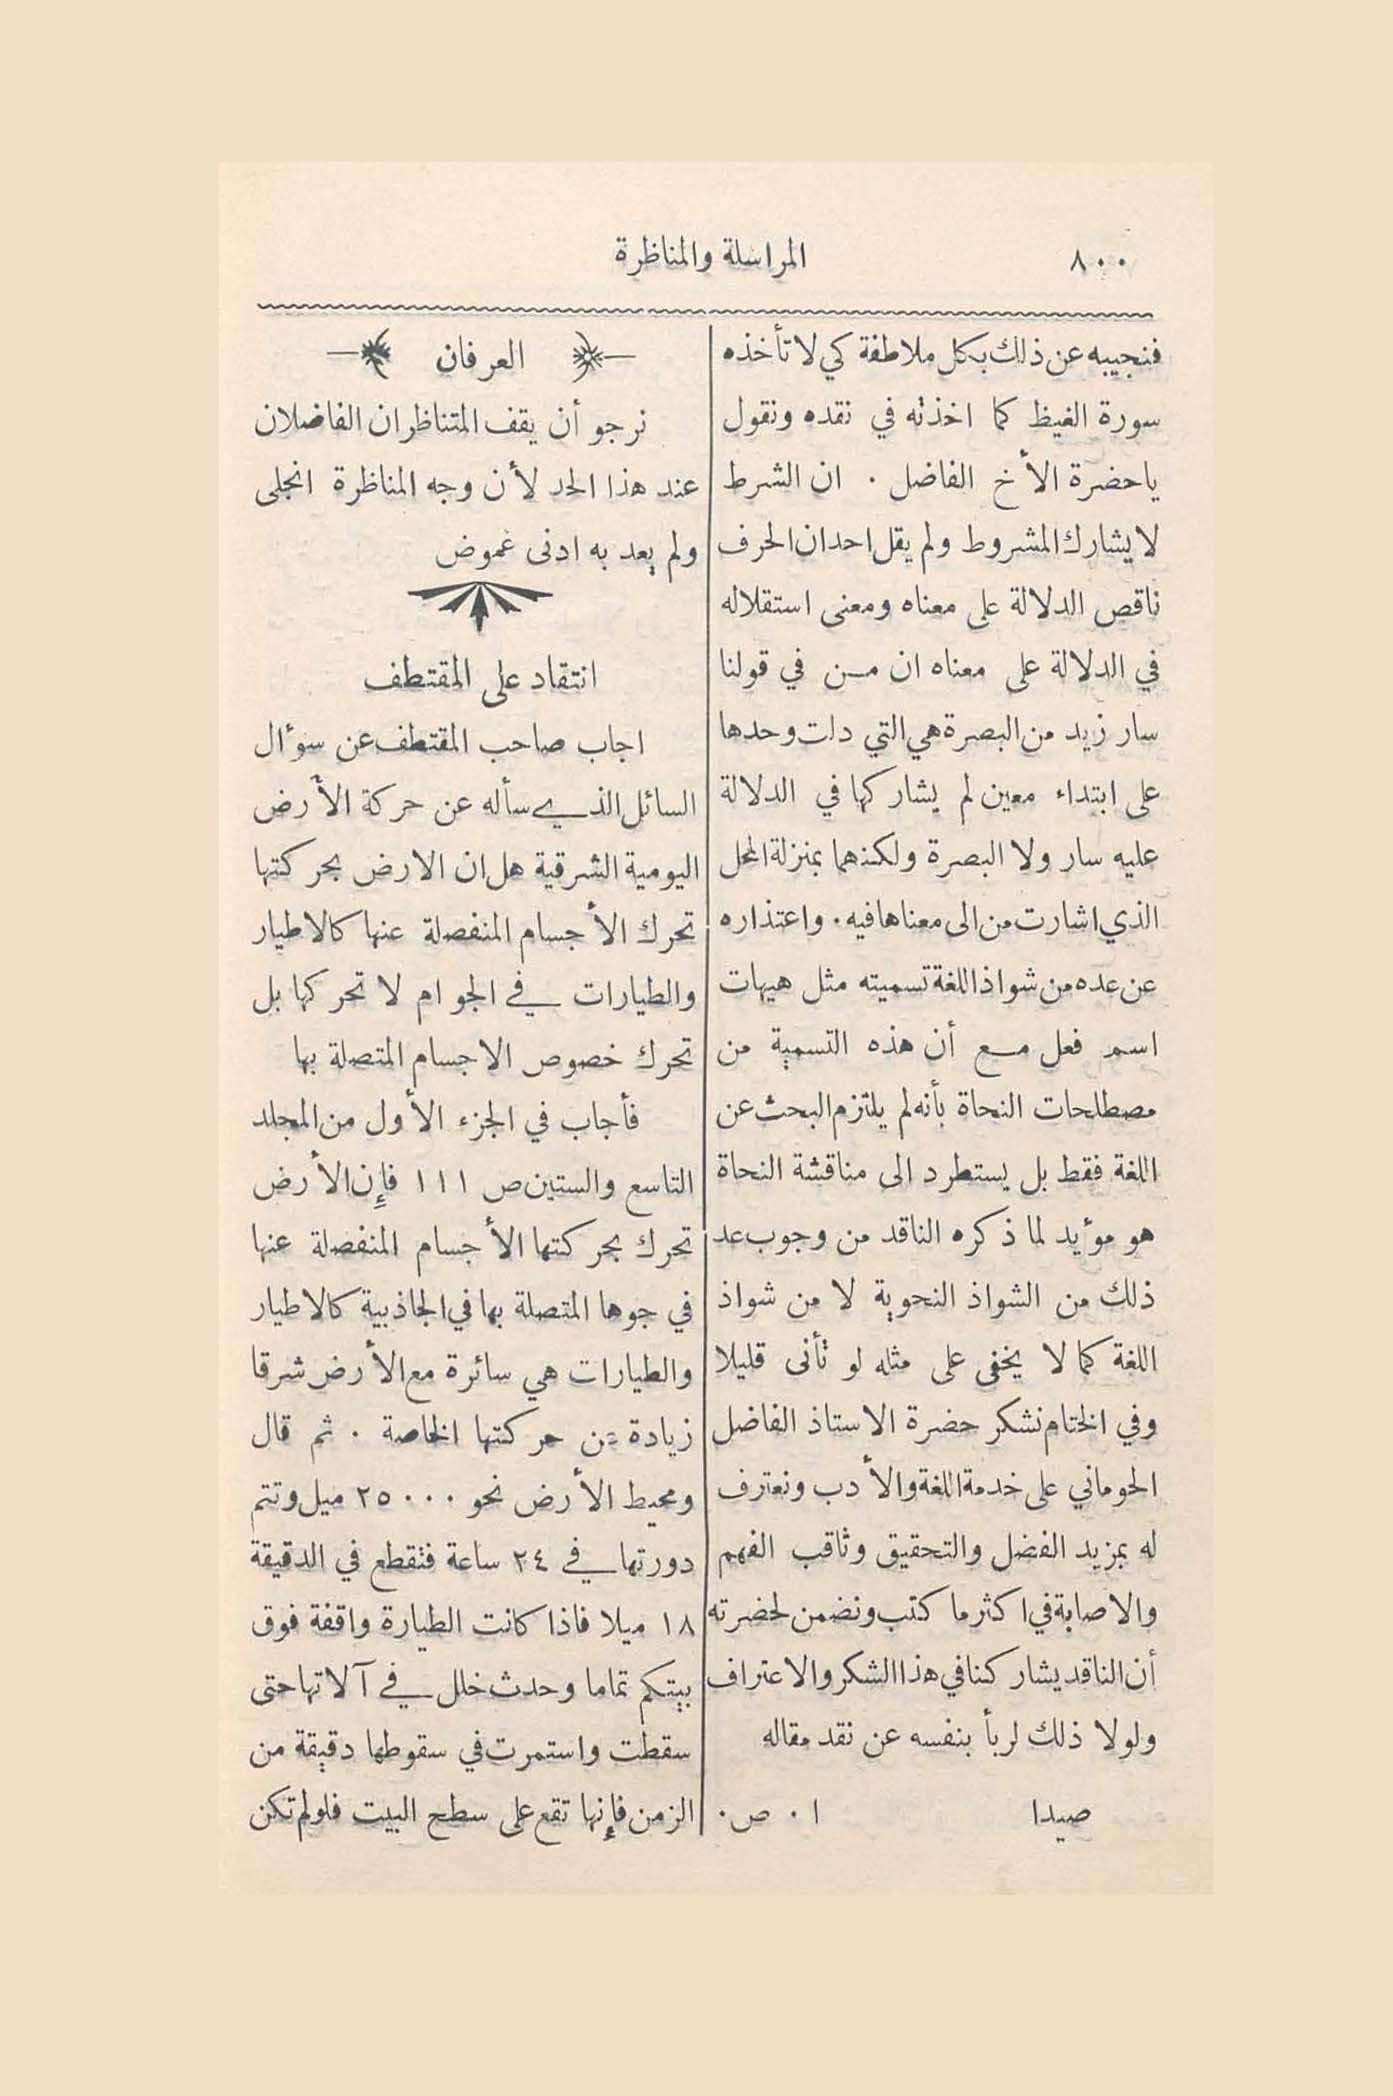 ٨٠٠
المراسلة والمناظرة
فنجيبه عن ذلك بكل ملاطفة كي لا تأخذه
سورة الغيظ كما اخذته في نقده ونقول
ياحضرة الأخ الفاضل . ان الشرط
لا يشارك المشروط ولم يقل احد ان الحرف
ناقص الدلالة على معناه ومعنى استقلاله
في الدلالة على معناه ان مـن في قولنا
سار زيد من البصرة هي التي دلت وحدها
على ابتداء معين لم يشاركها في الدلالة
عليه سار ولا البصرة ولكنهما بمنزلة المحل
الذي اشارت من الى معناها فيه . واعتذاره
عن عده من شواذ اللغة تسميته مثل هيهات
اسم فعل مـع أن هذه التسمية من
مصطلحات النحاة بأنه لم يلتزم البحث عن
اللغة فقط بل يستطرد الى مناقشة النحاة
هو مؤيد لما ذكره الناقد من وجوب عد
ذلك من الشواذ النحوية لا من شواذ
اللغة كما لا يخفى على مثله لو تأنى قليلا
وفي الختام نشكر حضرة الاستاذ الفاضل
الحوماني على خدمة اللغة والأدب ونعترف
له بمزيد الفضل والتحقيق وثاقب الفهم
والاصابة في اكثر ما كتب ونضمن لحضرته
أن الناقد يشاركنا في هذا الشكر والاعتراف
ولولا ذلك لربأ بنفسه عن نقد مقاله
صيدا ا . ص .
العرفان
نرجو أن يقف المتناظران الفاضلان
عند هذا الحد لأن وجه المناظرة انجلى
ولم يعد به ادنى غموض
انتقاد على المقتطف
اجاب صاحب المقتطف عن سوءال
السائل الذي سأله عن حركة الأرض
اليومية الشرقية هل ان الارض بحركتها
تحرك الأجسام المنفصلة عنها كالاطيار
والطيارات في الجو ام لا تحركها بل
تحرك خصوص الاجسام المتصلة بها
فأجاب في الجزء الأول من المجلد
التاسع والستين ص ١١١ فإن الأرض
تحرك بحركتها الأجسام المنفصلة عنها
في جوها المتصلة بها في الجاذبية كالاطيار
والطيارات هي سائرة مع الأرض شرقا
زيادة عن حركتها الخاصة . ثم قال
ومحيط الأرض نحو ٢٥٠٠٠ ميل وتتم
دورتها في ٢٤ ساعة فتقطع في الدقيقة
١٨ ميلا فاذا كانت الطيارة واقفة فوق
بيتكم تماما وحدث خلل في آلاتها حتى
سقطت واستمرت في سقوطها دقيقة من
الزمن فإنها تقع على سطح البيت فلو لم تكن